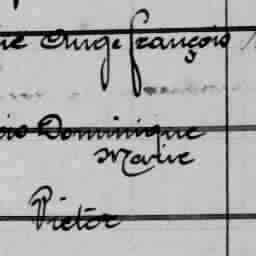 ie Ange françois
ois Dominique
Marie
Pietör